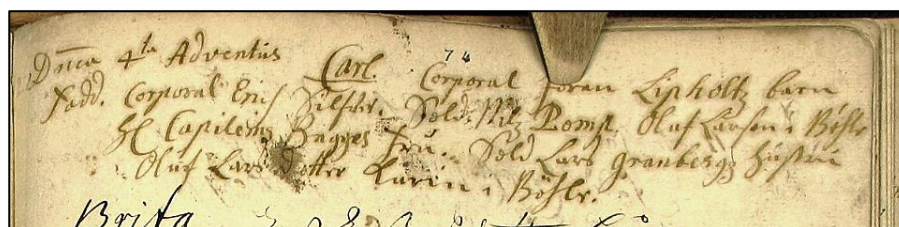 74
Dnica 4ta Adventus Carl. Corporal Joran Lipholtz barn
Fadd. Corporal Erich Silfver. Sold. Nilz Pomp. Oluf Larsen i Böhle
Hl Capitens Bagges Fru. Sold Lars Granbergz hustru
Oluf Lars dotter Karin i Böhle.
Brita